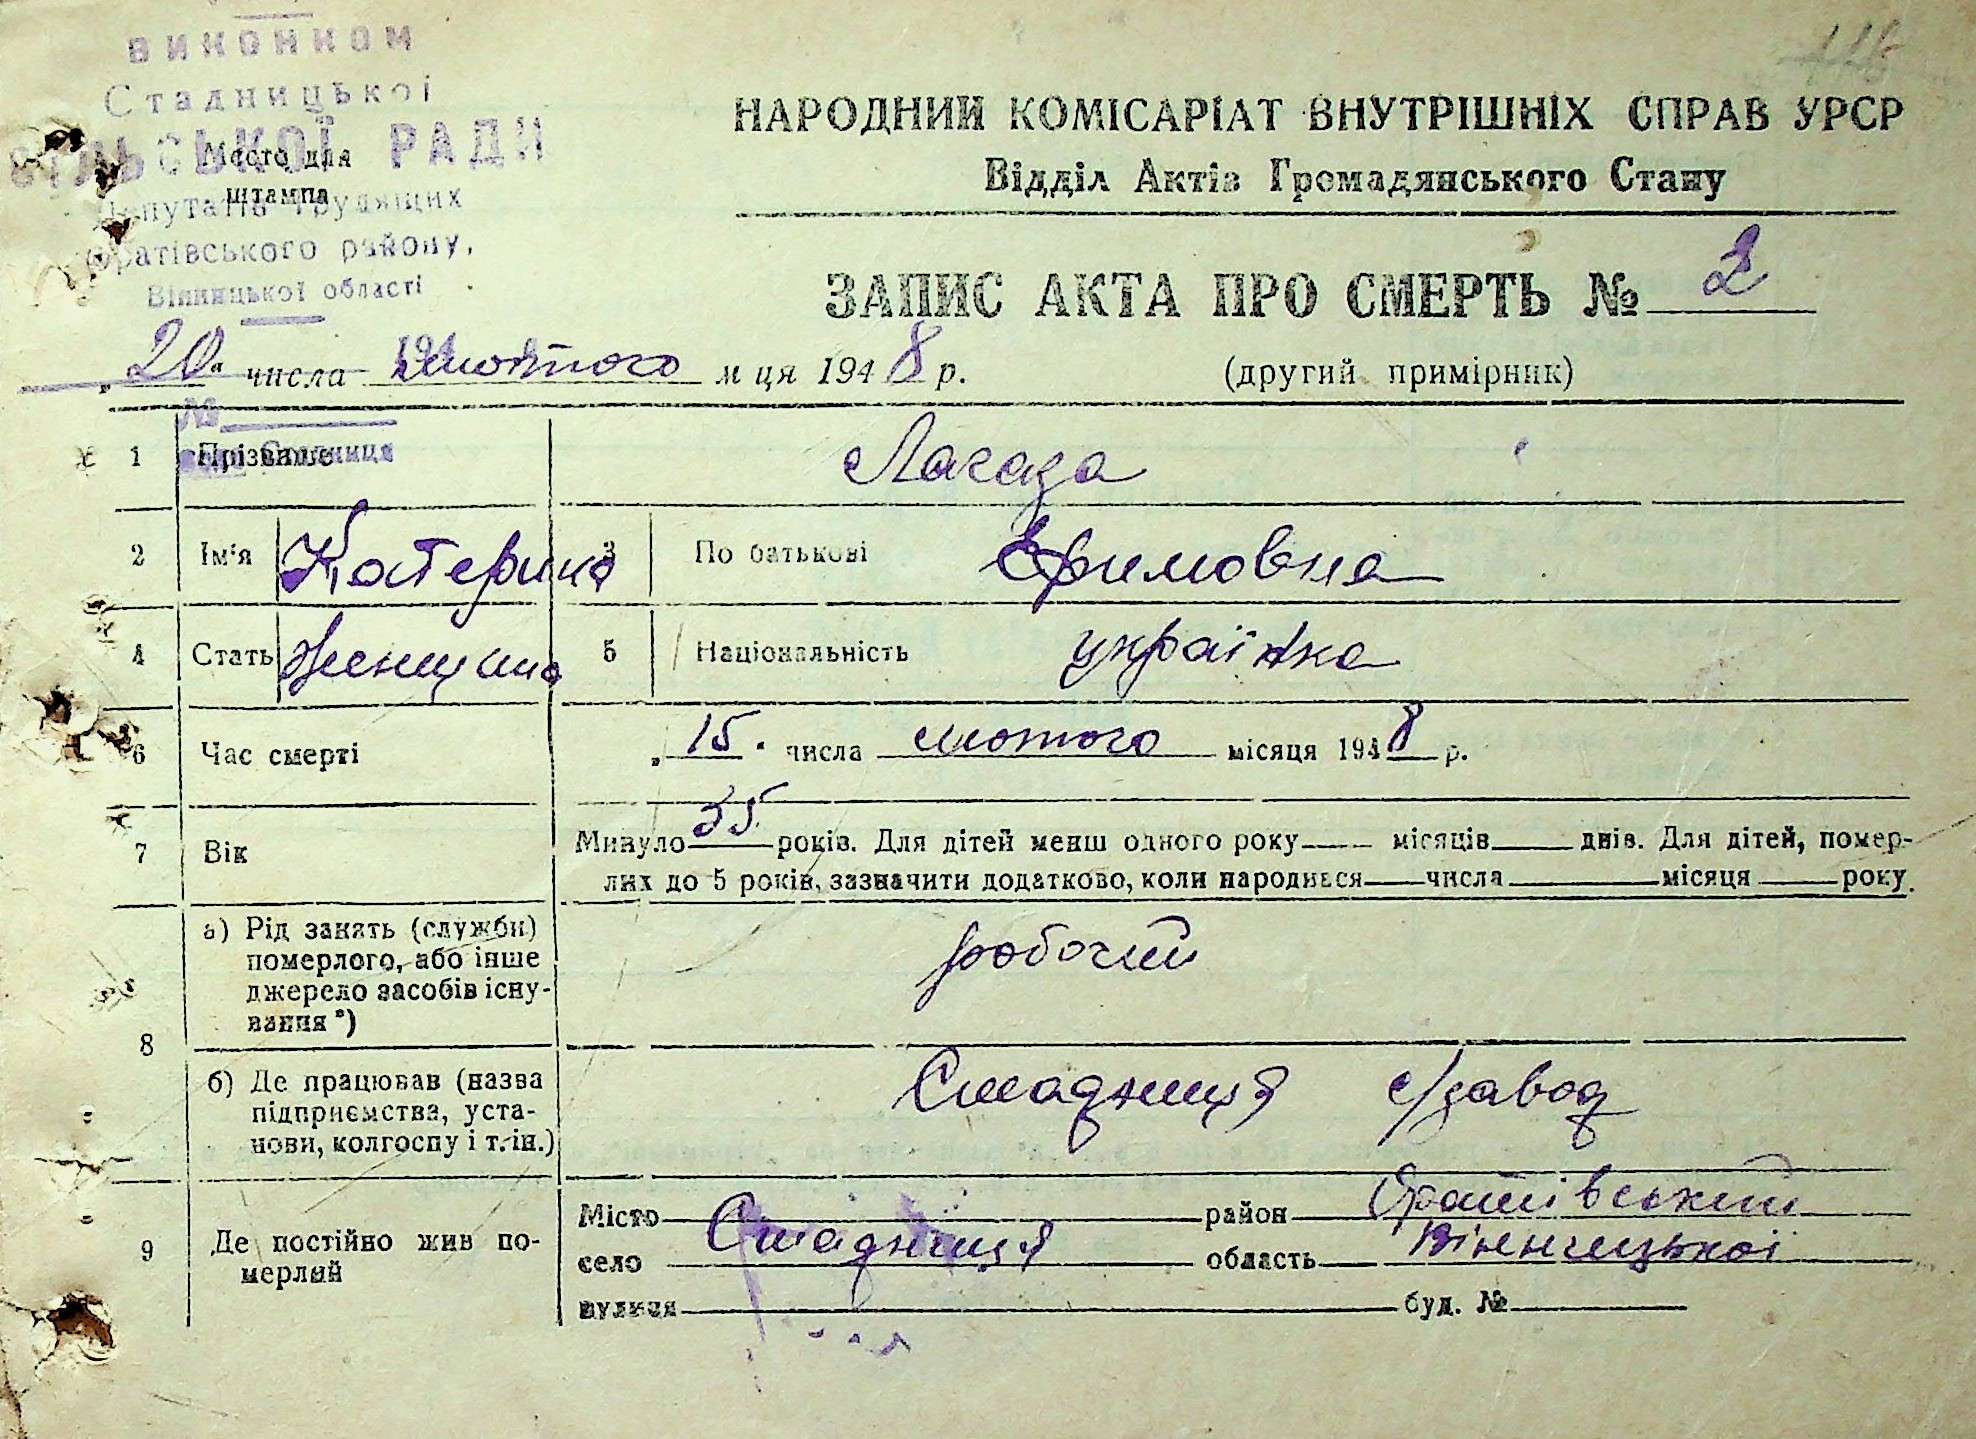 виконком
Стадницької
СІЛЬСЬКОЇ РАДИ
Место для
штампа
Депутатів Трудящих
Оратівського району,
Вінницької області
НАРОДНИЙ КОМІСАРІАТ ВНУТРІШНІХ СПРАВ УРСР
Відділ Актів Громадянського Стану
ЗАПИС АКТА ПРО СМЕРТЬ № 2
„20“ числа лютого м ця 1948 р. (другий примірник)
№
1 Прізвище
Стадниця
2 Ім'я Катерина 3 По батькові Єфимовна
4 Стать Женщина 5 Національність українка
6 Час смерті „15. числа лютого місяця 1948 р.
7 Вік Минуло 35 років. Для дітей менш одного року місяців днів. Для дітей, помер-
лих до 5 років, зазначити додатково, коли народився числа місяця року.
8 а) Рід занять (служби)
померлого, або інше
джерело засобів існу-
вання*)
робочий
б) Де працював (назва
підприємства, уста-
нови, колгоспу і т. ін.)
Стадниця с/завод
9 Де постійно жив по-
мерлий
Місто район Оратівський
село Стадниця область Вінницької
вулиця буд. №